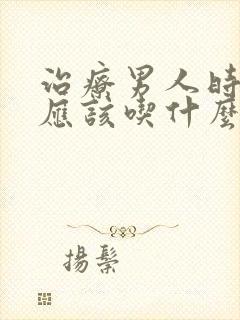 治療男人時
應該喫什麼
揚鬃